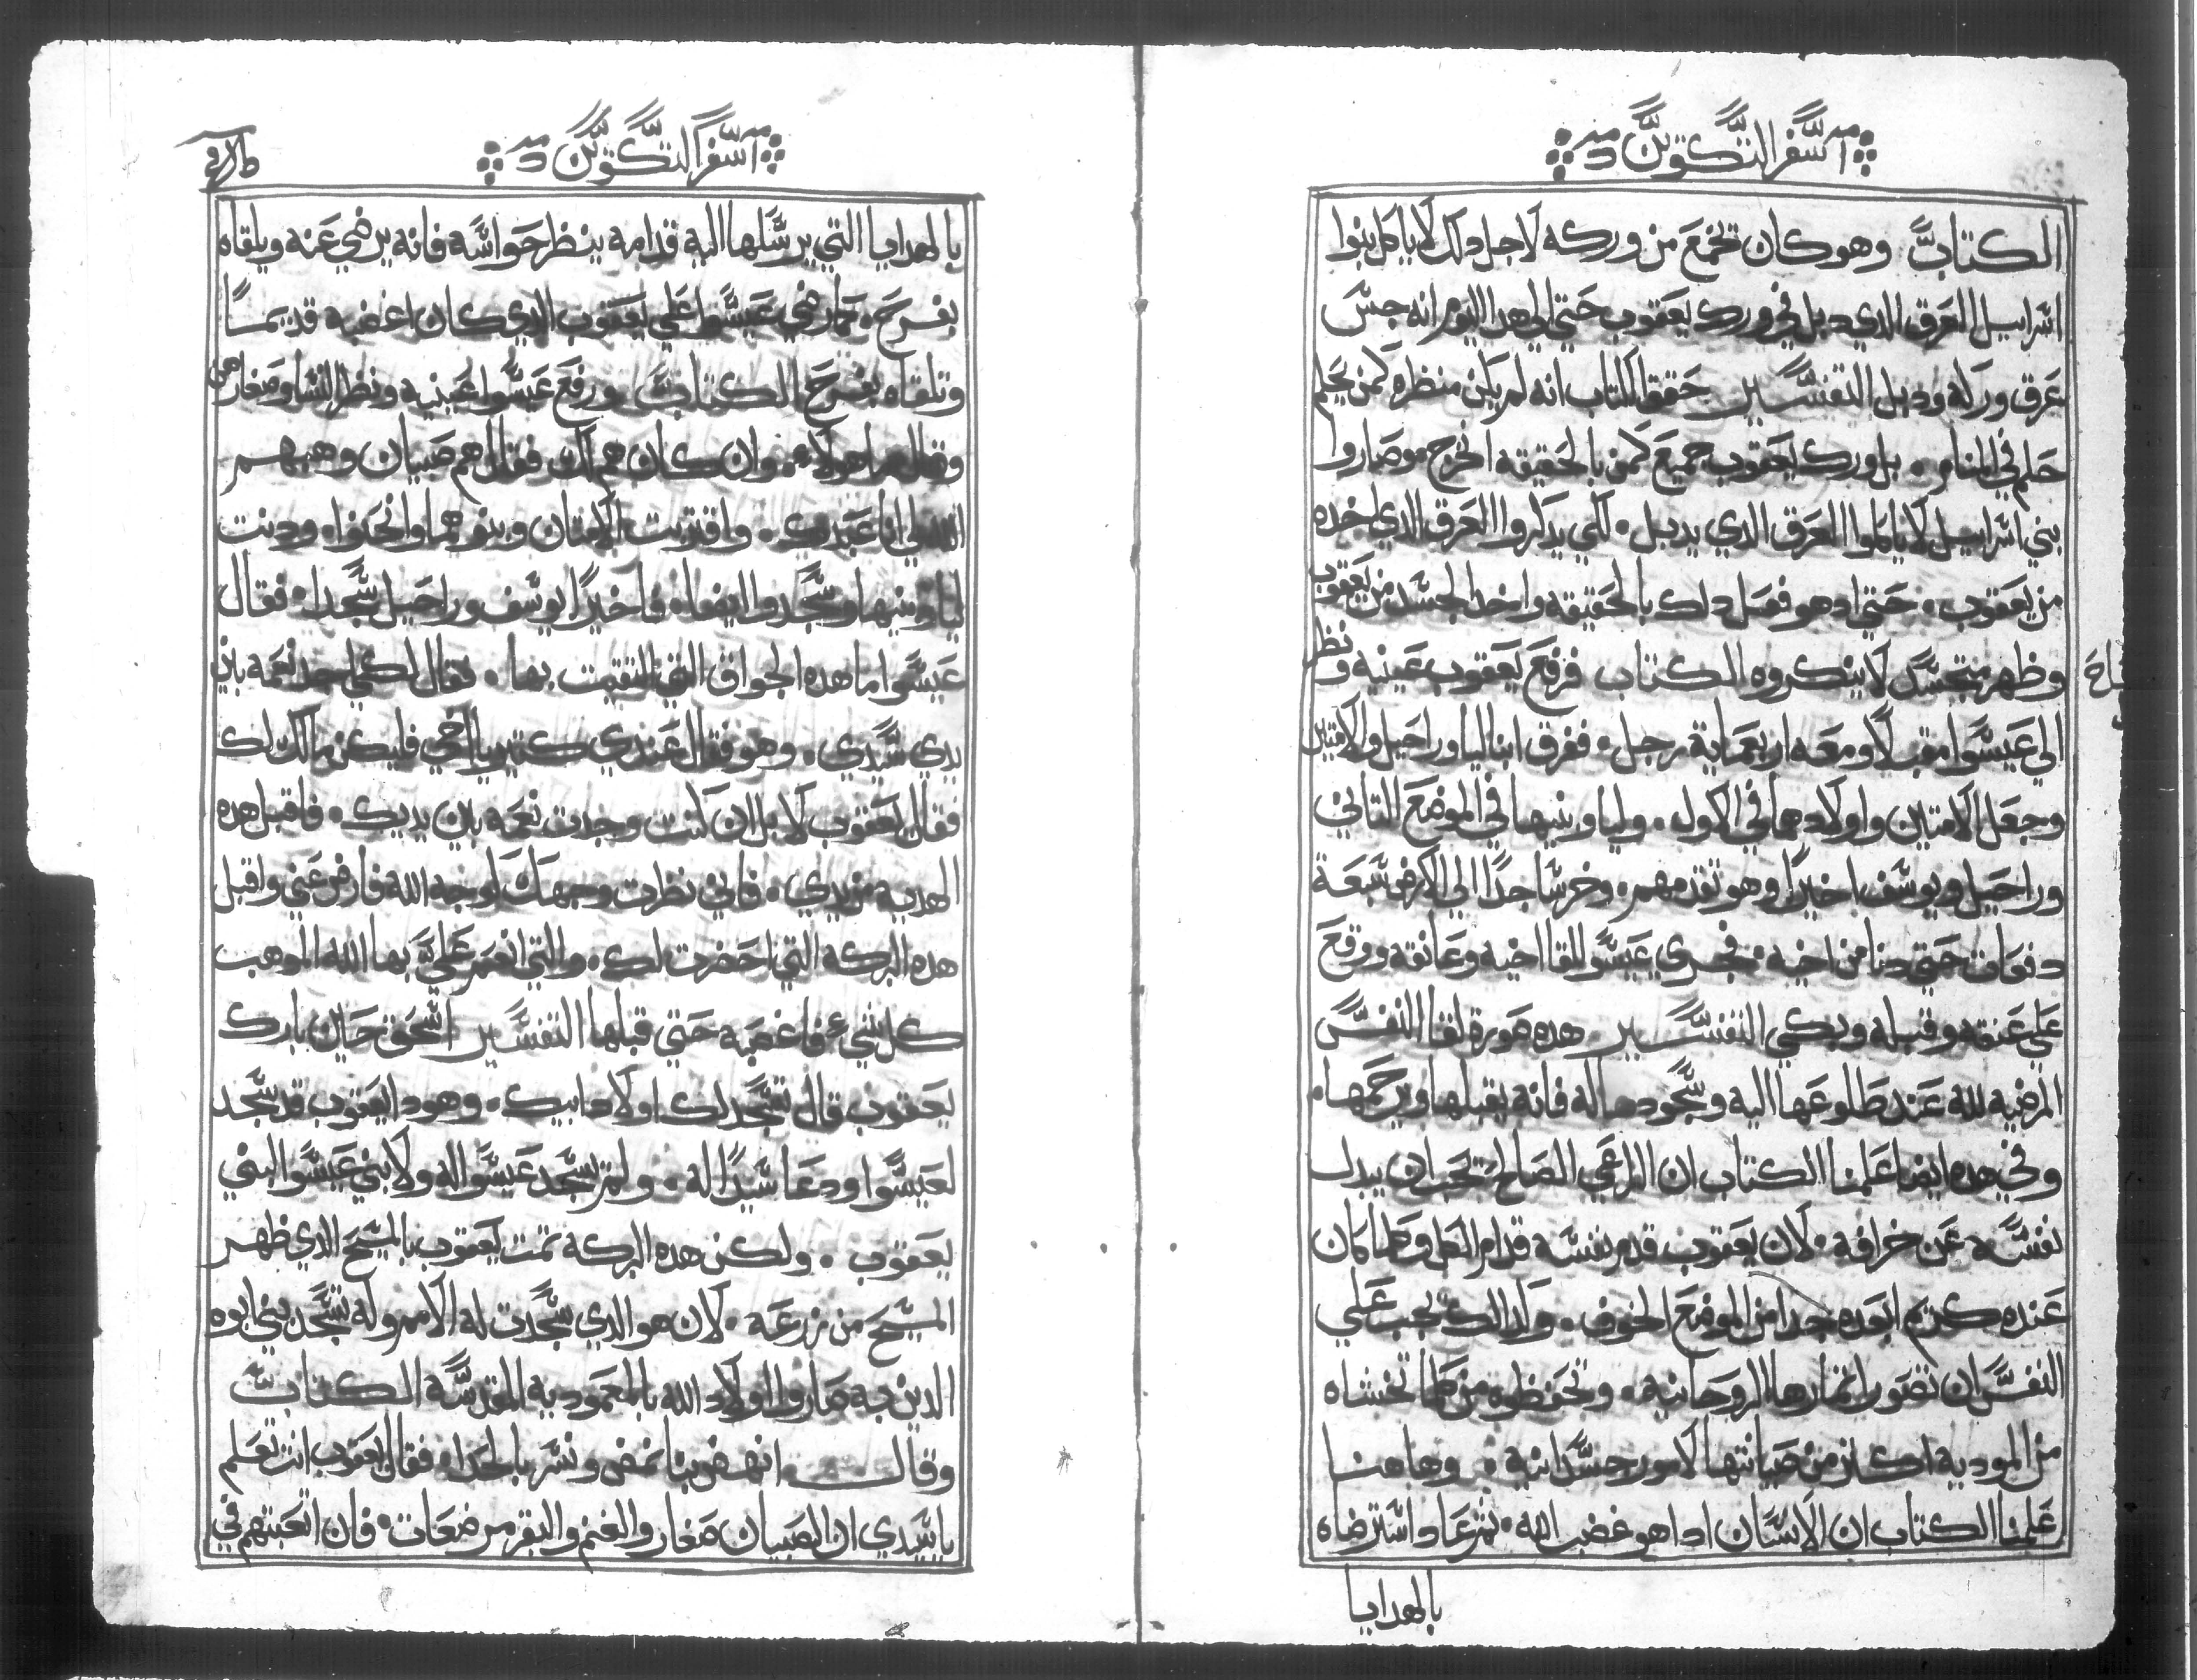 سفر التكوين
الكتاب وهو كان تخمع من وركه لاجل دلك لا ياكل بنوا
اسراييل العرق الدي دبل في ورك يعقوب حتي الي هدا اليوم انه جس
عرق وركه ودبل التفسير حقق الكتاب انه لم يكن منظره كمن يحلم
حلم في المنام بل ورك يعقوب جميع كمن بالحقيقه انخرج وصاروا
بني اسراييل لا ياكلوا العرق الدي يدبل لكي يدكروا العرق الدي اخده
من يعقوب حتي اد هو فعل دلك بالحقيقه واخد الجسد من يعقوب
وظهر متجسد لا ينكروه الكتاب فرفع يعقوب عينيه ونظر
الي عيسوا مقبلا ومعه اربعماية رجل ففرق ابنا ليا وراحيل والامتين
وجعل الامتين واولادهما في الاول وليا وبنيها في الموضع التاني
وراحيل ويوسف اخيرا وهو تقدمهم وخر ساجدا الي الارض سبعة
دفعات حتي دنا من اخيه فجري عيسوا للقا اخيه وعانقه ووقع
علي عنقه وقبله وبكي التفسير هده صورة لقا النفس
المرضيه لله عند طلوعها اليه وسجودها له فانه يقبلها ويرحمها
وفي هده ايضا علمنا الكتاب ان الراعي الصالح تحب ان يبدل
نفسه عن خرافه لان يعقوب قدم نفسه قدام الكل وكلما كان
عنده كريم ابعده جدا من الموضع الخوف ولدالك يجب علي
النفس ان تصون اتمارها الروحانيه وتحفظوه من كلما تخشاه
من الموديه اكتر من صيانتها لامور جسدانيه وهاهنا
علمنا الكتاب ان الانسان ادا هو غضب الله تم عاد استرضاه
بالهدايا
سفر التكوين
بالهدايا التي يرسلها اليه قدامه ينظر حواسه فانه يرضي عنه ويلقاه
بفرح كما رضي عيسوا علي يعقوب الدي كان اغضبه قديما
وتلقاه بفرح الكتاب ورفع عيسوا عينيه ونظر النسا وصغارهن
وقال هولاء وان كان هم لك فقال هم صبيان وهبهم
الله لي انا عبدك واقتربت الامتان وبنوهما وانحنوا ودنت
ليا وبنيها وسجدوا ايضا فاخيرا يوسف وراحيل سجدا فقال
عيسوا ما هده الجواق التي التقيت بها فقال لكي اجد نعمه بين
يدي سيدي وهو فقال عندي كتير يا اخي فليكن مالك لك
فقال يعقوب لا بل ان كنت وجدت نعمه بين يديك فاقبل هده
الهديه من يدي فاني نظرت وجهك كوجه الله فارض عني واقبل
هده البركه التي احضرت لك والتي انعم علي بها الله الموهب
كل شي فاغصبه حتي قبلها التفسير اسحق حين بارك
يعقوب قال تسجد لك اولاد ابيك وهودا يعقوب قد سجد
لعيسوا ودعا سيدا له ولم تسجد عيسوا له ولا بني عيسوا لبني
يعقوب ولكن هده البركه تمت ليعقوب بالمسيح الدي ظهر
المسيح من زرعه لان هو الدي سجدت له الامم وله تسجد بني ابوه
الدين به صاروا اولاد الله بالمعموديه المقدسه الكتاب
وقال انهض بنا نمض ونسر بالحدا فقال يعقوب انت تعلم
يا سيدي ان الصبيان صغار والغنم والبقر مرضعات فان اتعبتهم في